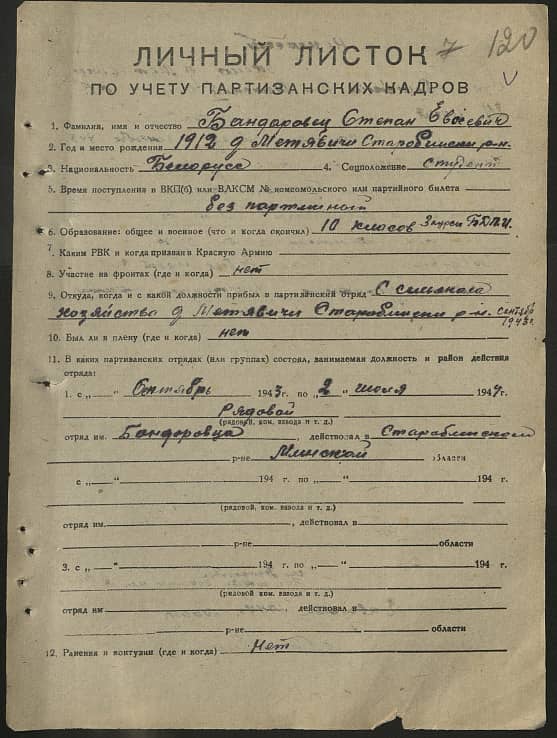 ЛИЧНЫЙ ЛИСТОК 7 120
ПО УЧЕТУ ПАРТИЗАНСКИХ КАДРОВ V
1. Фамилия, имя и отчество Бандаровец Степан
2. Год и место рождения 1912 д Метявичи Старобински р-н.
3. Национальность Белорусс 4. Соцположение студент
5. Время поступления в ВКП(б) или ВЛКСМ № комсомольского или партийного билета
без партийный
6. Образование: общее и военное (что и когда окончил) 10 класов 3 курса
7. Каким РВК и когда призван в Красную Армию
8. Участие на фронтах (где и когда) нет
9. Откуда, когда и с какой должности прибыл в партизанский отряд С
хозяйства д Метявичи Старобински р-н. 1943г.
10. Был ли в плену (где и когда) нет
11. В каких партизанских отрядах (или группах) состоял, занимаемая должность и район действия
отряда:
1. с „ “ Октябрь 1943 г. по „2“ июля 1944г.
Рядовой
(рядовой, ком. взвода и т. д.)
отряд им. Бандоровца, действовал в Старобинском
р-не Минской области
с „ “ 194 г. по „ “ 194 г.
(рядовой, ком. взвода и т. д.)
отряд им. , действовал в
р-не области
3. с „ “ 194 г. по „ “ 194 г.
(рядовой, ком. взвода и т. д.)
отряд им , действовал в
р-не области
12. Ранения и контузии (где и когда) Нет